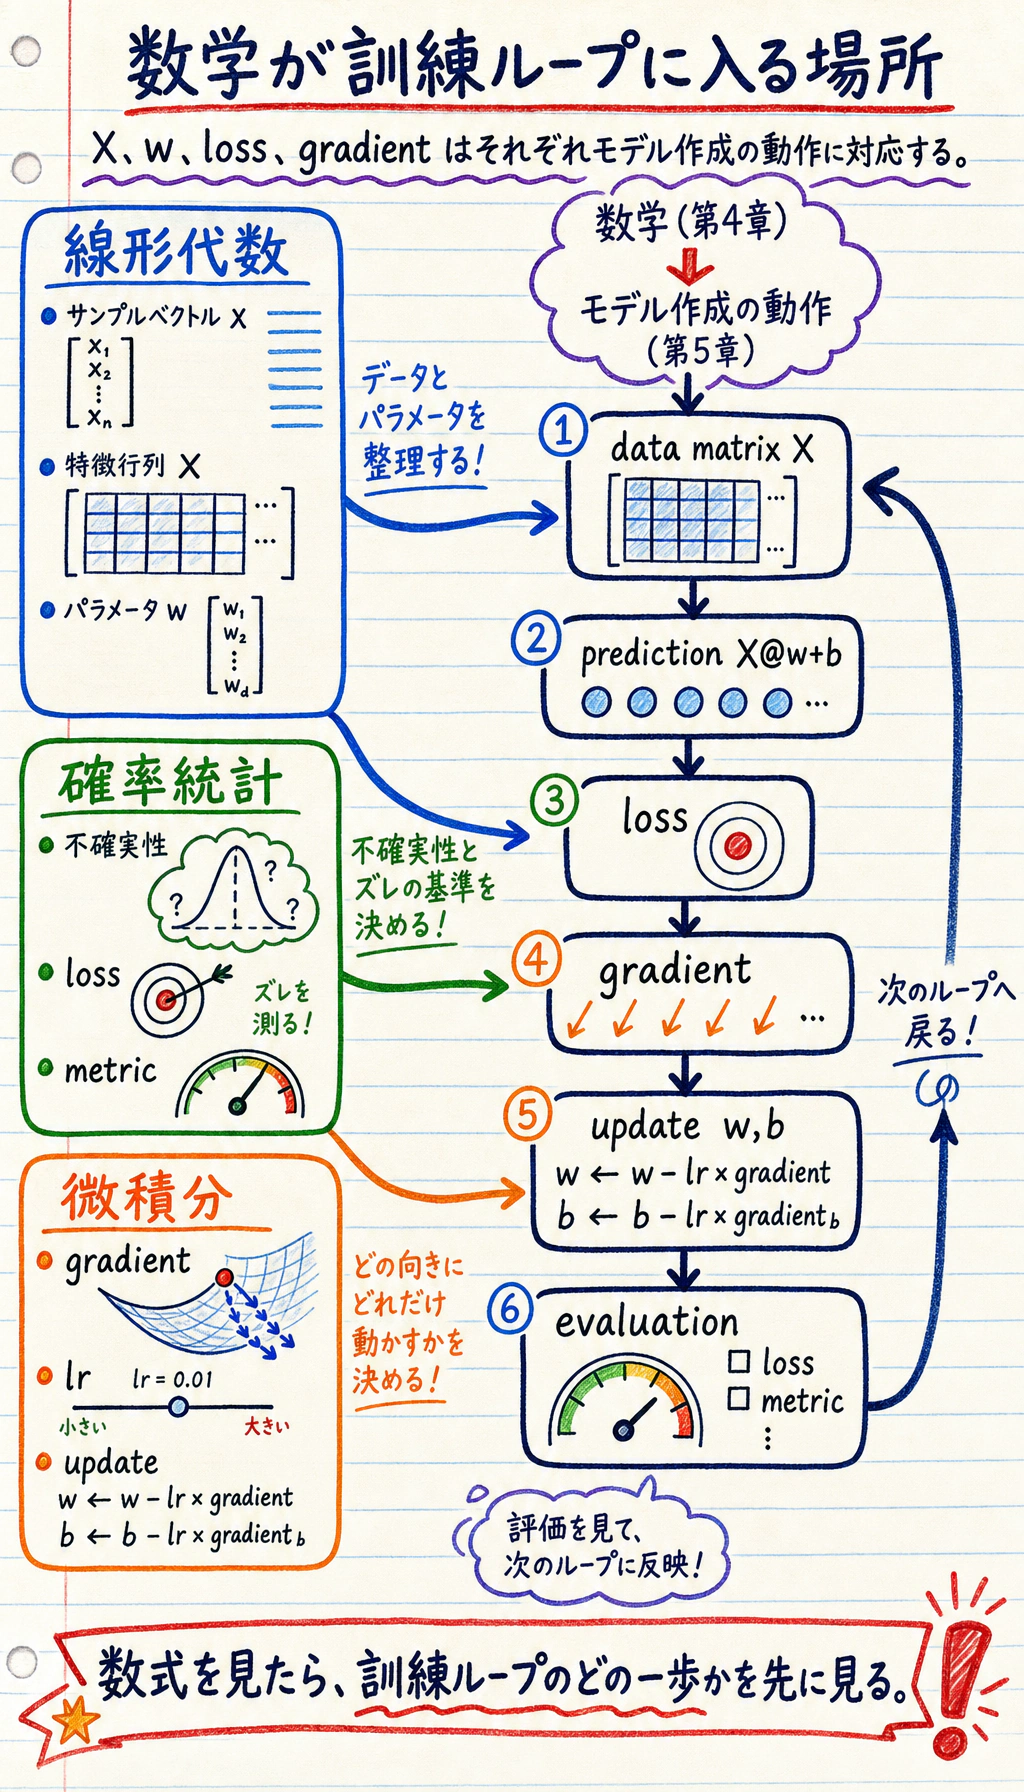 数学が訓練ループに入る場所
X、w、loss、gradient はそれぞれモデル作成の動作に対応する。
線形代数
サンプルベクトル x
x₁
x₂
⋮
xₙ
特徴行列 X
...
...
パラメータ w
w₁
w₂
⋮
w_d
データと
パラメータを
整理する!
確率統計
不確実性
? ? ?
loss
ズレを
測る!
metric
不確実性と
ズレの基準を
決める!
微積分
gradient
lr
lr = 0.01
小さい 大きい
update
w ← w − lr × gradient
b ← b − lr × gradient_b
どの向きに
どれだけ
動かすかを
決める!
数学 (第4章)
モデル作成の動作
(第5章)
1
data matrix X
...
...
2
prediction X@w+b
...
3
loss
4
gradient
...
5
update w,b
w ← w − lr × gradient
b ← b − lr × gradient_b
6
evaluation
loss
metric
⋮
次のループへ
戻る!
評価を見て、
次のループに反映!
数式を見たら、訓練ループのどの一歩かを先に見る。
!